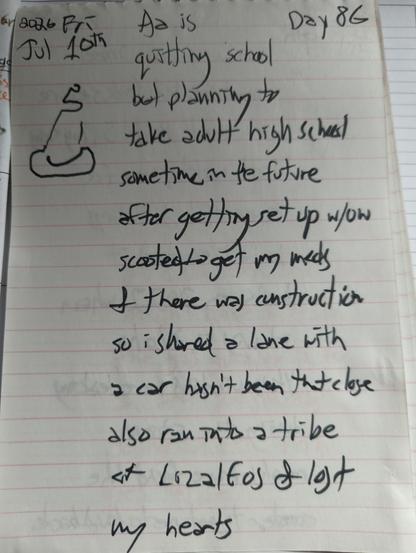 2026 Fri
Jul 10th
Day 86
Aa is
quitting school
but planning to
take adult high school
sometime in the future
after getting set up w/ow
scooted to get my meds
& there was construction
so i shared a lane with
a car hasn't been that close
also ran into a tribe
at & lost
my hearts